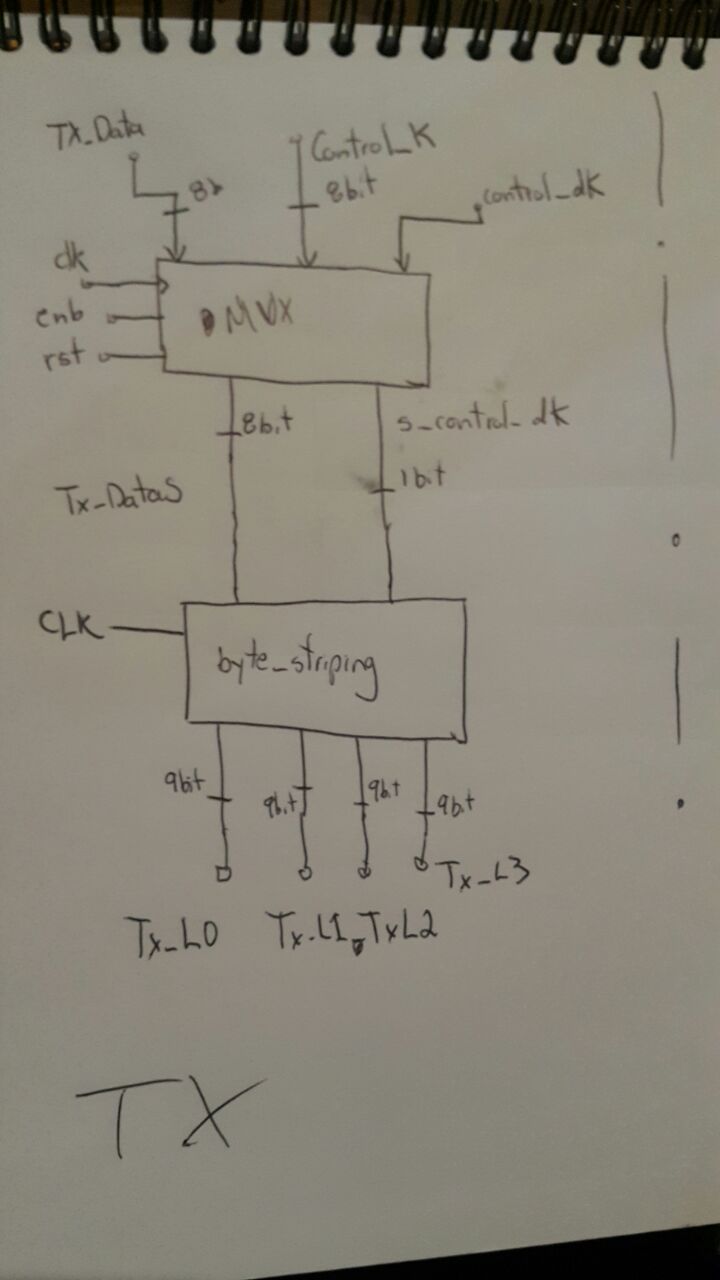 TX_Data
Control_K
8b
8bit
control_dK
clk
enb
rst
MUX
8bit
s_control_dk
1bit
Tx_DataS
CLK
byte_striping
9bit
9bit
9bit
9bit
Tx_L3
Tx_L0 Tx_L1 TxL2
TX